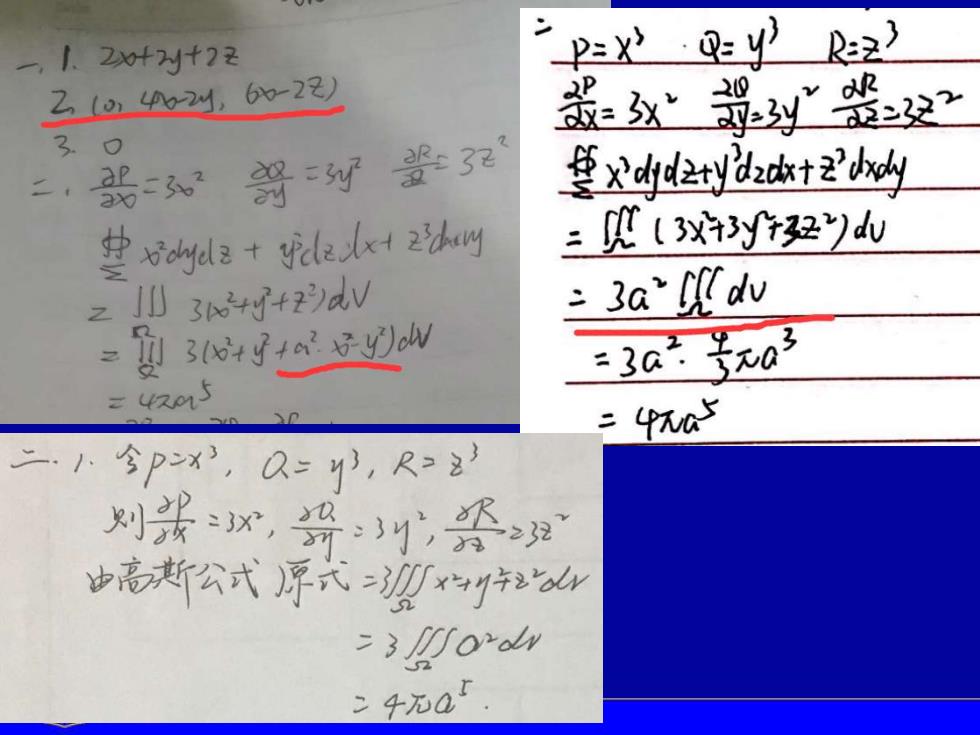 一、1. 2x+2y+2z
2. (0, 4x-2y, 6x-2z)
3. 0
二、∂P/∂x=3x² ∂Q/∂y=3y² ∂R/∂z=3z²
∯_Σ x³dydz + y³dzdx + z³dxdy
= ∭_Ω 3(x²+y²+z²)dV
= ∭_Ω 3(x²+y²+a²-x²-y²)dV
= 4πa⁵
二
P=x³ Q=y³ R=z³
∂P/∂x=3x² ∂Q/∂y=3y² ∂R/∂z=3z²
∯_Σ x³dydz+y³dzdx+z³dxdy
= ∭_Ω (3x²+3y²+3z²)dv
= 3a² ∭_Ω dv
= 3a²·4/3πa³
= 4πa⁵
二.1. 令P=x³, Q=y³, R=z³
则∂P/∂x=3x², ∂Q/∂y=3y², ∂R/∂z=3z²
由高斯公式,原式=3∭_Ω x²+y²+z²dv
=3∭_Ω a²dv
=4πa⁵.